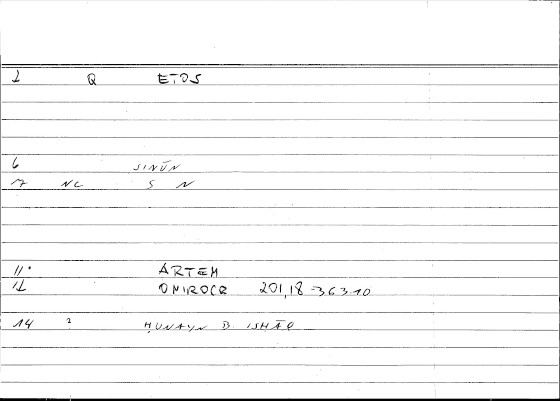 1 Q ETOS
6 SINŪN
7 NL S N
11. ARTEM
12 ONIROCR 201,18-363.10
14 2 ḤUNAYN B. ISḤĀQ